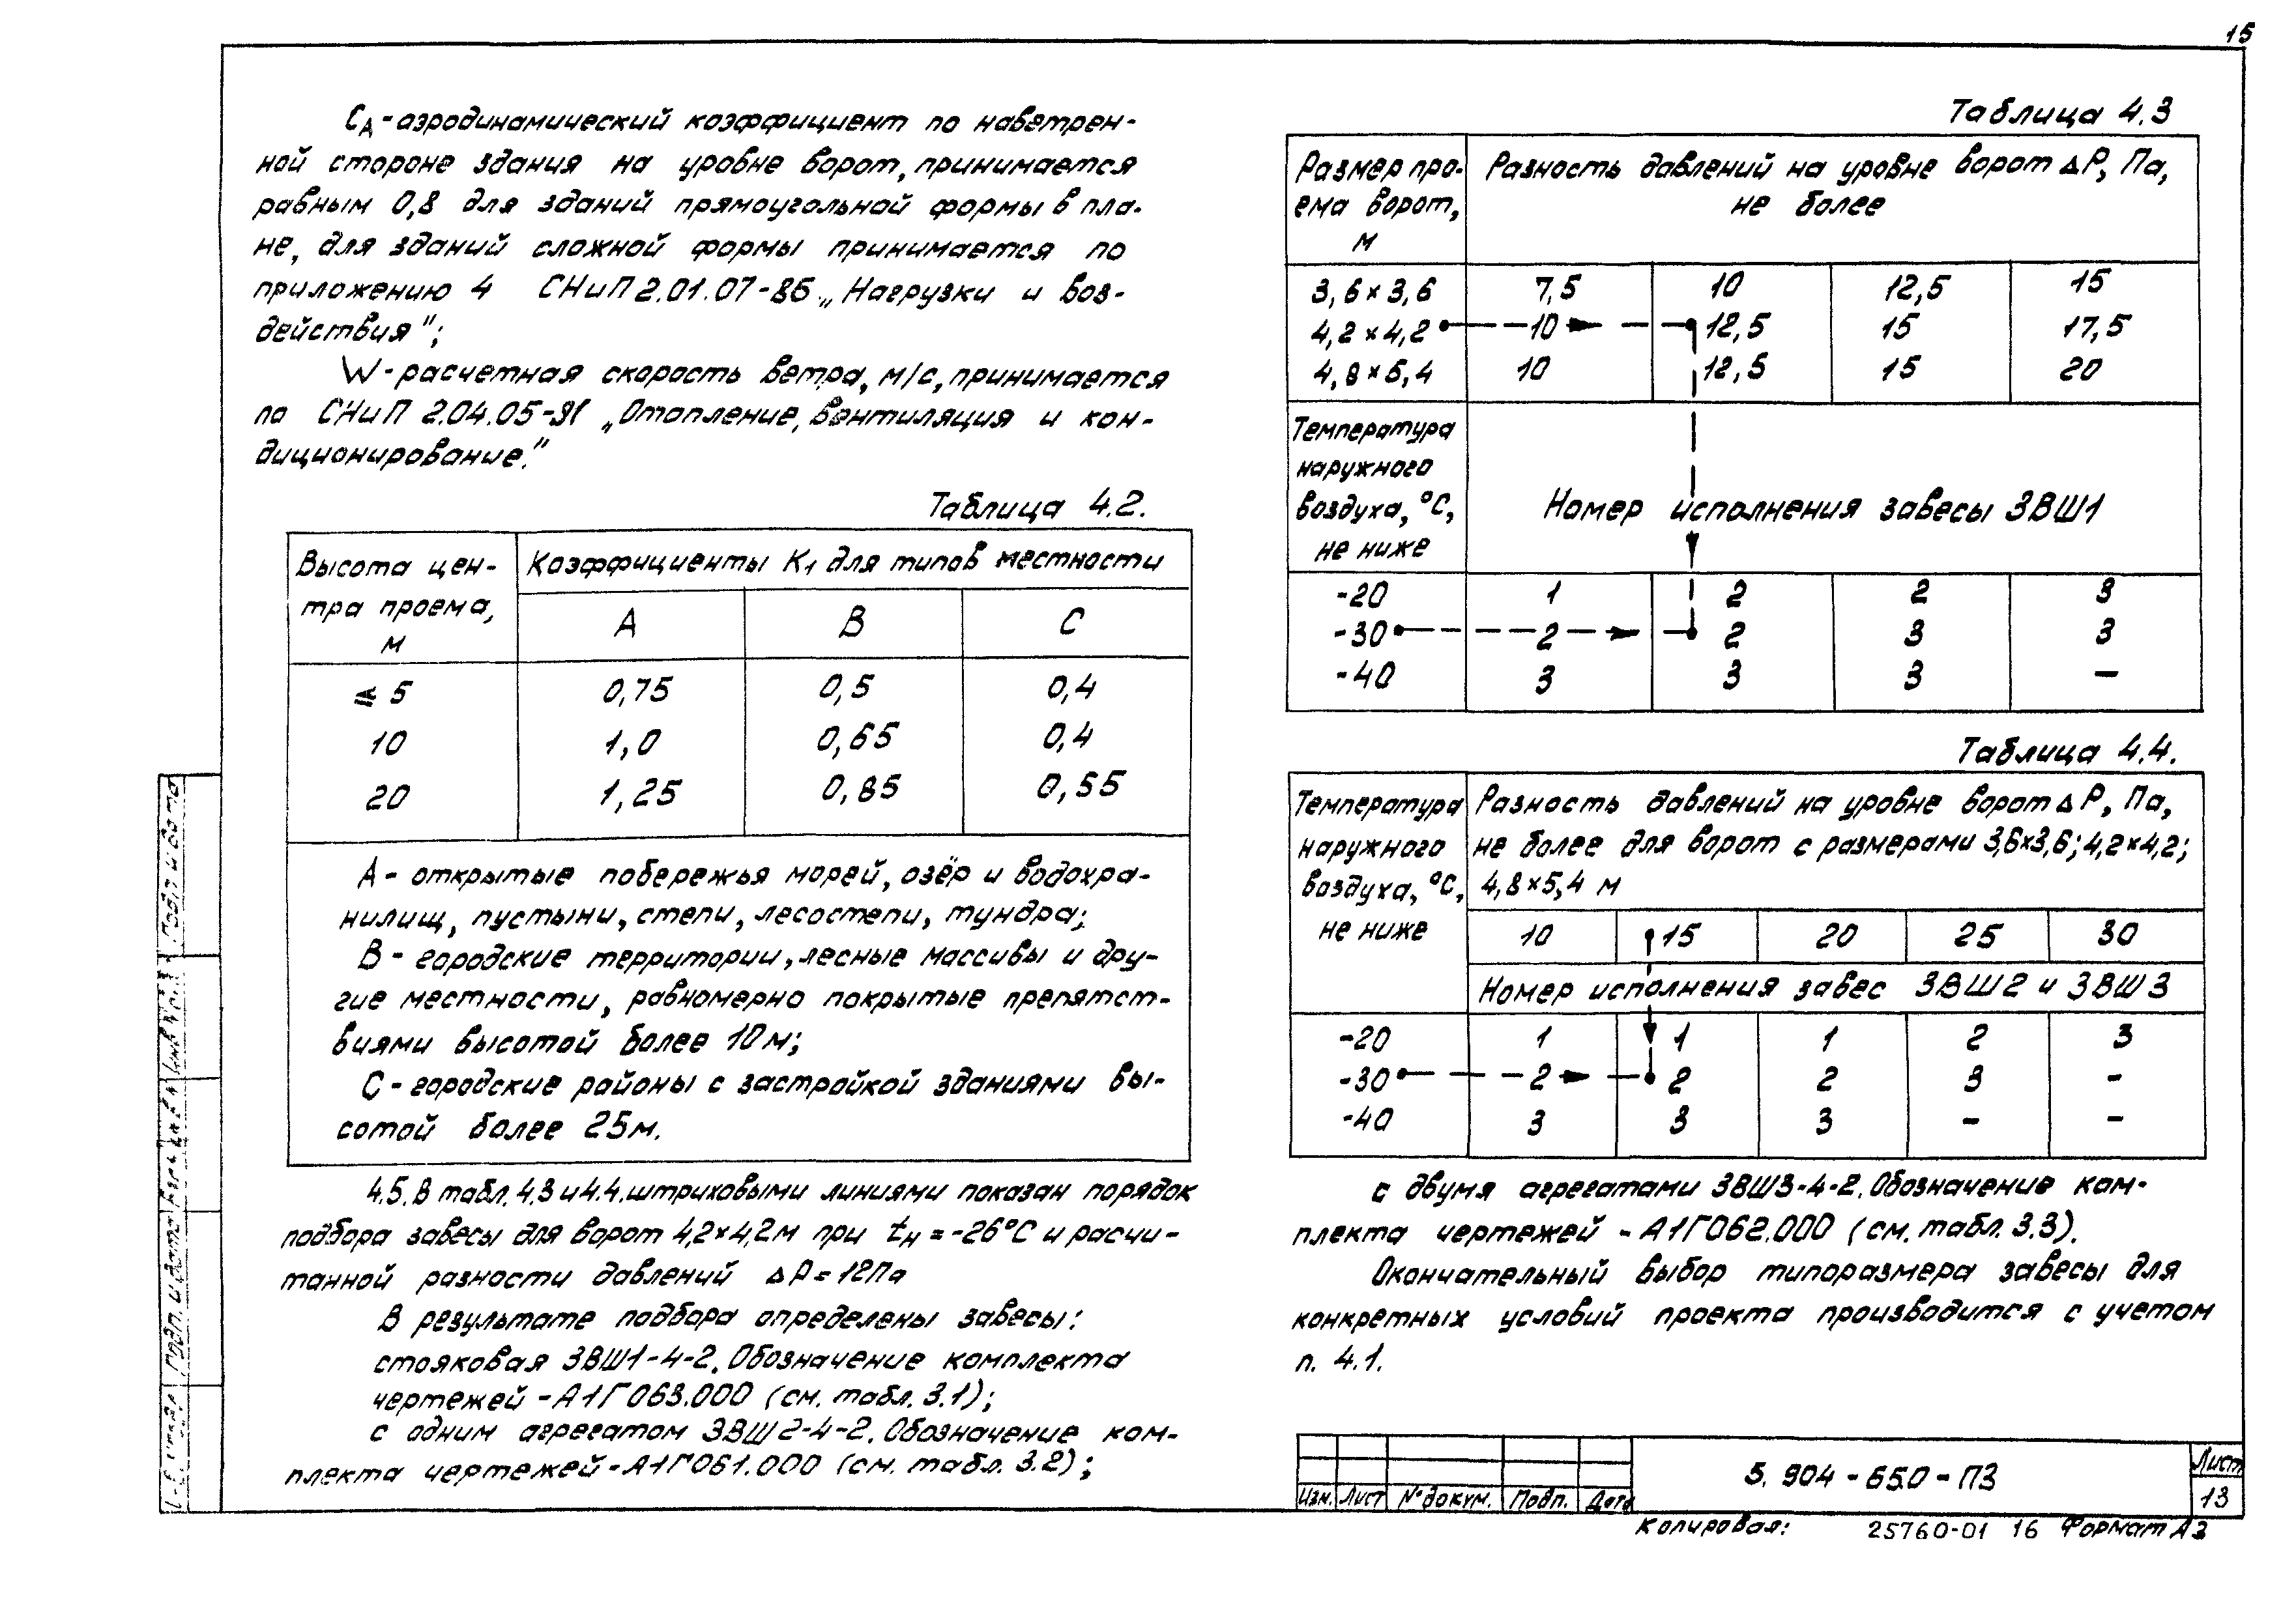 15
C_A - аэродинамический коэффициент по наветрен-
ной стороне здания на уровне ворот, принимается
равным 0,8 для зданий прямоугольной формы в пла-
не, для зданий сложной формы принимается по
приложению 4 СНиП 2.01.07-85 „Нагрузки и воз-
действия";
W - расчетная скорость ветра, м/с, принимается
по СНиП 2.04.05-91 „Отопление, вентиляция и кон-
диционирование."
Таблица 4.2.
Высота цен- Коэффициенты К1 для типов местности
тра проема,
м A B C
≤ 5 0,75 0,5 0,4
10 1,0 0,65 0,4
20 1,25 0,85 0,55
А - открытые побережья морей, озёр и водохра-
нилищ, пустыни, степи, лесостепи, тундра;
В - городские территории, лесные массивы и дру-
гие местности, равномерно покрытые препятст-
виями высотой более 10м;
С - городские районы с застройкой зданиями вы-
сотой более 25м.
4.5. В табл. 4.3 и 4.4. штриховыми линиями показан порядок
подбора завесы для ворот 4,2×4,2м при tн = -26°С и расчи-
танной разности давлений ΔР = 12Па
В результате подбора определены завесы:
стояковая ЗВШ1-4-2. Обозначение комплекта
чертежей - А1Г063.000 (см. табл. 3.1);
с одним агрегатом ЗВШ2-4-2. Обозначение ком-
плекта чертежей - А1Г061.000 (см. табл. 3.2);
Таблица 4.3
Размер про- Разность давлений на уровне ворот ΔР, Па,
ема ворот, не более
м
3,6×3,6 7,5 10 12,5 15
4,2×4,2 10 12,5 15 17,5
4,8×5,4 10 12,5 15 20
Температура
наружного
воздуха, °С, Номер исполнения завесы ЗВШ1
не ниже
-20 1 2 2 3
-30 2 2 3 3
-40 3 3 3 –
Таблица 4.4.
Температура Разность давлений на уровне ворот ΔР, Па,
наружного не более для ворот с размерами 3,6×3,6; 4,2×4,2;
воздуха, °С, 4,8×5,4 м
не ниже 10 15 20 25 30
Номер исполнения завес ЗВШ2 и ЗВШ3
-20 1 1 1 2 3
-30 2 2 2 3 –
-40 3 3 3 – –
с двумя агрегатами ЗВШ3-4-2. Обозначение ком-
плекта чертежей - А1Г062.000 (см. табл. 3.3).
Окончательный выбор типоразмера завесы для
конкретных условий проекта производится с учетом
п. 4.1.
Изм. Лист № докум. Подп. Дата
5.904-65.0-ПЗ
Лист
13
Копировал: 25760-01 16 Формат А3
Подп. и дата